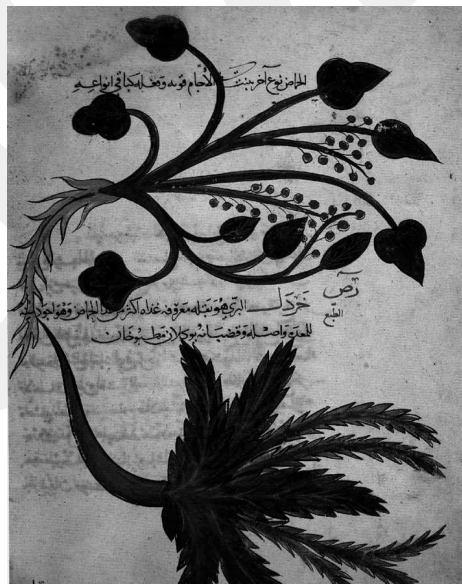 الحماض نوع آخر ينبت في الآجام قوته وفعله كباقي انواعه
خردل البري هو بقلة معروفة غذاه اكثر من الحماض وهو اجود
للمعدة واصله وقضبانه يوكلان مطبوخان
الطبع